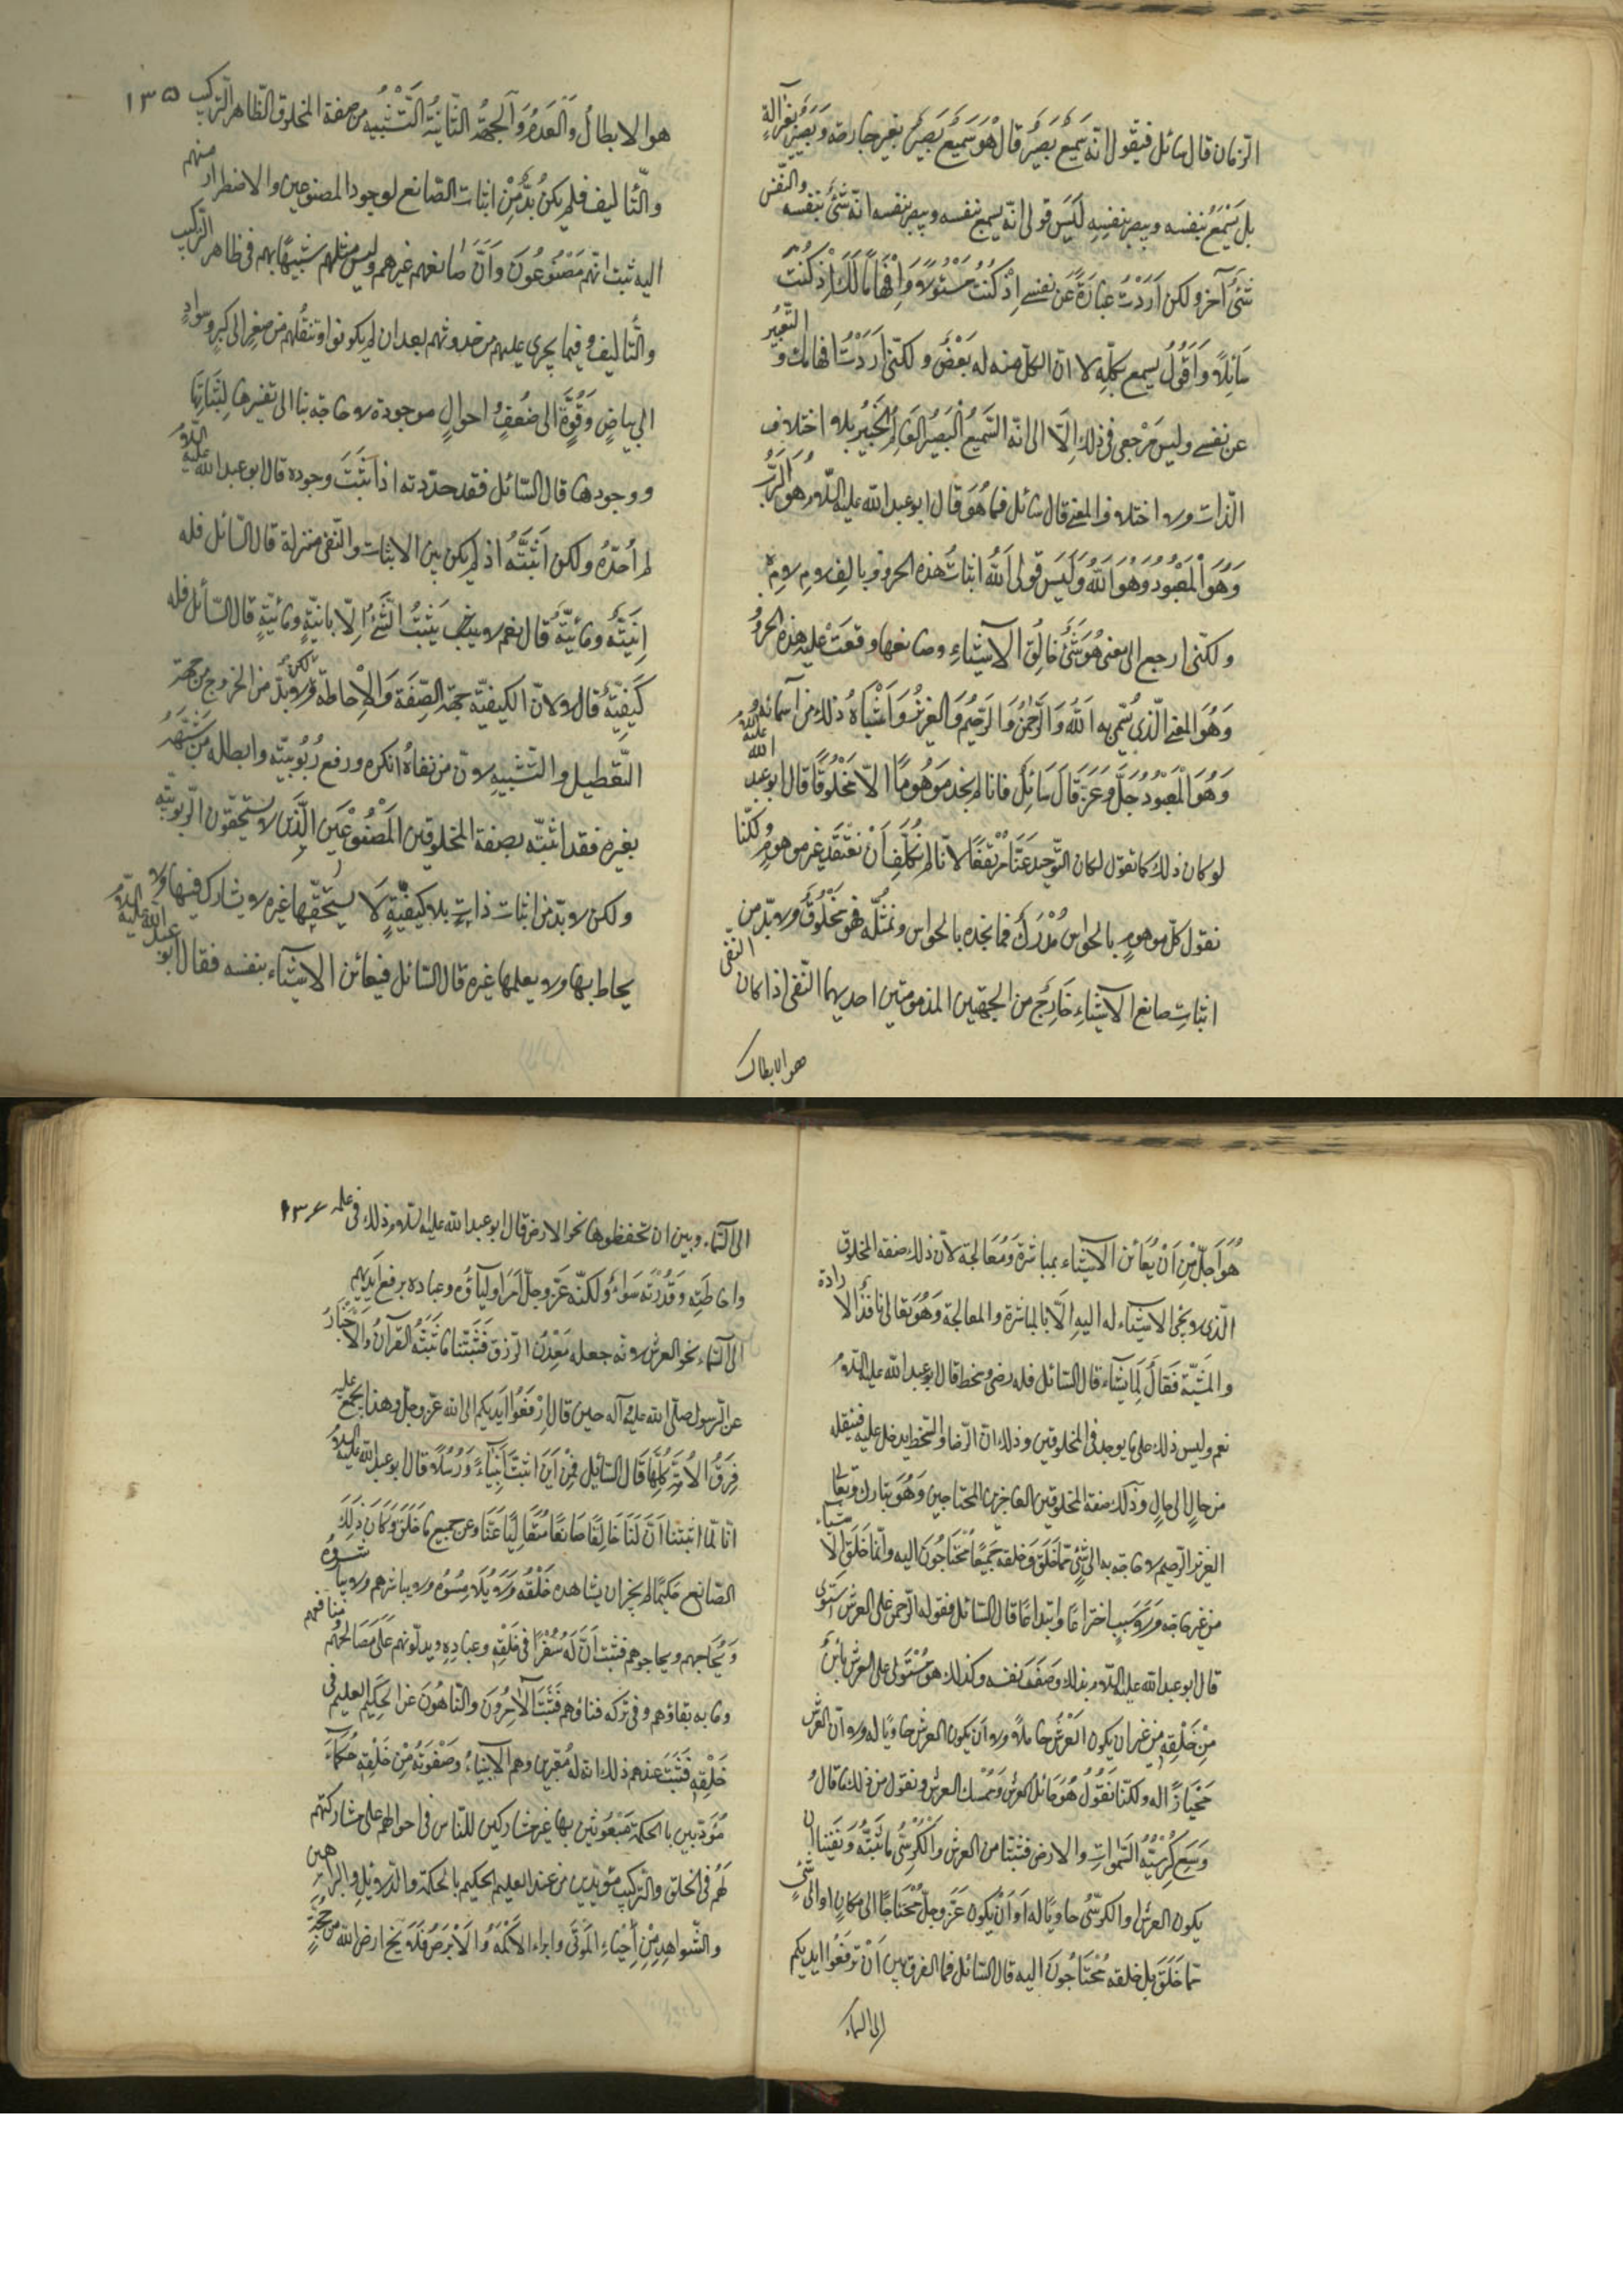 الزمان قال سائل فيقول انّه سَمِيعٌ بَصِيرٌ قال هُوَ سَمِيعٌ بَصِيرٌ سميع بغير جارحة وَبَصِيرٌ بغير آلةٍ
بل يَسْمَعُ بنفسه ويبصر بنفسِهِ لَيْسَ قولى انّه يسمع بنفسه ويبصر بنفسه انّه شَىْءٌ بنفسه والنّفس
شَىْءٌ آخر ولكن اَرَدْتُ عِبَارَةً عَن نَفْسِى اِذْ كُنْتُ مَسْئُولًا وَاِفْهَامًا لَكَ اِذْ كُنْتَ
سَائِلًا وَاَقُولُ يسمع بكلّهِ لا انّ الكلّ منه له بَعْضٌ ولكنّى اَرَدْتُ افهامك والتَّعْبِيرُ
عن نفسى وليس مَرْجعى فى ذلك اِلّا الى انّه السَّمِيعُ الْبَصِيرُ الْعَالِمُ الْخَبِيرُ بلا اختلاف
الذّات ولا اختلاف المعنى قال سائل فما هُوَ قال ابو عبد الله عليه السّلام هُوَ الرَّبُّ
وَهُوَ الْمَعْبُودُ وَهُوَ اللّٰهُ وَلَيْسَ قولى اللّٰهُ اثباتُ هذه الحروف الف لام لام ه
ولكنّى ارجع الى معنى هُوَ شَىْءٌ خَالِقُ الاَشْيَاءِ وصانعها وقعَتْ عليه هذه الحروفُ
وَهُوَ المعنى الّذى يُسَمّى به اَللّٰهُ وَالرَّحْمٰنُ وَالرَّحِيمُ وَالْعَزِيزُ وَاَشْبَاهُ ذلك من اَسمائِهِ
وَهُوَ الْمَعْبُودُ جَلَّ وَعَزَّ قَالَ سَائِلٌ فانا لم نجد مَوهُومًا الّا مَخْلُوقًا قال ابو عبد الله عليه السلام
لو كان ذلك كما تقول لكان التّوحيد عَنَّا مُرْتَفِعًا لانّا لم نُكَلَّفْ اَنْ نَعْتَقِدَ غير موهومٍ ولكنّا
نقول كلّ موهوم بالحواسّ مُدْرَكٌ فما نجده بالحواس ونمثّله فهو مَخْلُوقٌ ولا بدّ من
اثباتِ صانعِ الاَشْيَاءِ خَارِجٌ من الجهتين المذمومتين احديهما النّفى اذا كان النّفى
هو الابطال
١٣٥
هو الابطالُ وَالْعَدَمُ وَالْجِهَةُ الثّانِيَةُ التَّشْبِيهُ من صفة المخلوق الظّاهر التّركيب
والتّأليف فلم يكُنْ بُدٌّ مِنْ اثبات الصّانع لوجود المصنوعين والاضطرار منهم
اليه ثبت انّهم مَصْنُوعُونَ وَاَنَّ صانعهم غيرهم وليس مثلهم شَبيهًا بهم فى ظاهر التّركيب
والتّأليف وفيما يجرى عليهم من حدوثهم بعد ان لم يكونوا وتنقّلهم من صِغَرٍ الى كِبَرٍ وسوادٍ
الى بياضٍ وَقُوَّةٍ الى ضُعْفٍ واحوالٍ موجودة لا حاجة بنا الى تفسيرها لِثَبَاتِهَا
ووجودها قال السّائل فقد حدّدته اذا ثَبَتَ وجوده قال ابو عبد الله عليه السلام
لم اُحَدِّدْهُ ولكن اَثْبَتُّهُ اذ لم يكن بين الاثبات والنّفى منزلة قال السّائل فله
اِنِّيَّةٌ ومائيّةٌ قال نعم لا يَثْبُتُ الشَّىْءُ اِلّا بانيّةٍ ومائيّةٍ قال السّائل فله
كَيْفِيَّةٌ قال لا لانّ الكيفيّة جِهَة الصِّفَة وَالْاِحاطَة ولكن لا بدّ من الخروج من جهة
التّعطيل والتّشبيه لانّ من نفاهُ انكره ورفع رُبُوبيّته وابطله مَنْ شبّهه
بغيره فقد اثبتّه بصفة المخلوقين الْمَصْنُوعِينَ الّذين لا يستحقّون الرّبوبيّة
ولكن لا بدّ من اثبات ذاتٍ بلا كيفيّةٍ لَا يستحقّها غيره لا يشارك فيها ولا
يحاط بها ولا يعلمها غيره قال السّائل فيعانى الاشياء بنفسه فقال ابو عبد الله عليه السلام
هُوَ اَجَلُّ مِنْ اَنْ يُعَانِىَ الاَشياء بمباشرة وَمُعَالجة لانّ ذلك صفة المخلوق
الّذى لا يجئ الاشياء له اليه اِلّا بالمباشرة والمعالجة وَهُوَ تعالى نافذُ الارادة
والمشيّة فَعَّالٌ لِمَا يَشاء قال السّائل فله رضى وسخط قال ابو عبد الله عليه السلام
نعم وليس ذلك على ما يوجد فى المخلوقين وذلك انّ الرّضا والسّخط يدخل عليه فينقله
من حالٍ الى حالٍ وذلك صفة المخلوقين العاجزين المحتاجين وَهُوَ تبارك وتعالى
العزيز الرّحيم لا حاجة به الى شَىْءٍ ممّا خَلَقَ وخلقه جَمِيعًا مُحْتَاجُونَ اليه وانّما خَلَقَ الاشياء
من غير حاجة وَلَا سَبَبٍ اختراعًا وابتداعًا قال السّائل فقوله الرّحمن على العرش استوى
قال ابو عبد الله عليه السّلام بذلك وَصَفَ نفسه وكذلك هو مُسْتَولٍ على العرش بائنٌ
مِنْ خَلْقِهِ من غير ان يكون الْعَرْشُ حاملًا ولا اَنْ يكون العرش حاويًا له ولا انّ العرش
مُحْتَازًا له ولكنّا نَقُولُ هُوَ حَامِلُ العرش وَمُمْسك العرش ونقول من ذلك ما قال
وَسِعَ كُرْسِيُّهُ السَّمٰواتِ والارض فثبتنا من العرش وَالْكُرْسِىِّ مَا ثَبَّتَهُ وَنَفَيْنَا ان
يكون العرش او الكرسىُّ حاويًا له اَوْ اَنْ يكون عَزَّ وجلّ مُحْتَاجًا الى مكان او الى شئٍ
ممّا خَلَقَ بل خلقه مُحْتَاجُونَ اليه قال السّائل فما الفرق بين اَنْ ترفَعُوا ايديكم
الى السماء
١٣٦
الى السّماء وبين ان تخفضوها نحو الارض قال ابو عبد الله عليه السّلام ذلك فى علمه
واحاطَتِهِ وَقُدْرَتِهِ سَواءٌ ولكنّه عَزَّ وجلّ اَمَرَ اوليآؤه وعباده برفع اَيديهم
الى السّماء نحو العرش لانّه جعله مَعْدِنَ الرّزق فَثَبَّتْنَا ما ثَبَّتَهُ القُرْآنُ والاَخْبَارُ
عن الرّسول صلّى الله عليه وآله حين قال اِرْفَعُوا ايديكم الى الله عزّ وجلّ وهذا يجمع عليه
فِرَقُ الاُمَّةِ كُلِّهَا قَالَ السّائِلُ فَمِنْ اَيْنَ اثبتَّ اَنْبِيَاءً وَرُسُلًا قال ابو عبد الله عليه السلام
انّا لمّا اثبتنا اَنَّ لَنَا خَالِقًا صَانِعًا مُتَعَالِيًا عَنَّا وعن جميع ما خَلَقَ وَكَانَ ذلِكَ
الصّانع حَكِيمًا لم يجز ان يشاهده خَلْقُهُ وَلَا يُلَامِسُوهُ ولا يباشرهم ولا يباشروه
وَيُحَاجّهم ويحاجّوهم فثبت اَنَّ لَهُ سُفَرَآءَ فى خَلْقِهِ وعبادِهِ ويدلّونهم عَلَى مَصَالِحِهم ومنافعهم
وما به بقاؤهم وفى تركه فناؤهم فَثَبَتَ الآمِرُونَ والنّاهُونَ عن الحكيم العليم فى
خَلْقِهِ فَثَبَتَ عندهم ذلك انّه له مُعَبّرين وهم الاَنْبِيَاءُ وَصَفْوَتُهُ مِنْ خَلْقِهِ حُكَمَاءَ
مُؤَدّبينَ بالحكمة مَبْعُوثينَ بها غير مشاركين للنّاس فى احوالهم على مشاركتهم
لَهُمْ فى الخلق والتّركيب مؤيّدين من عند العليم الحكيم بالحكمة والدّلائل والبراهين
والشّواهد مِنْ اِحْيَاءِ الْمَوْتَى وابراء الاَكْمَهِ وَالاَبْرَصِ فَلَا يخ ارض الله من حجّةٍ